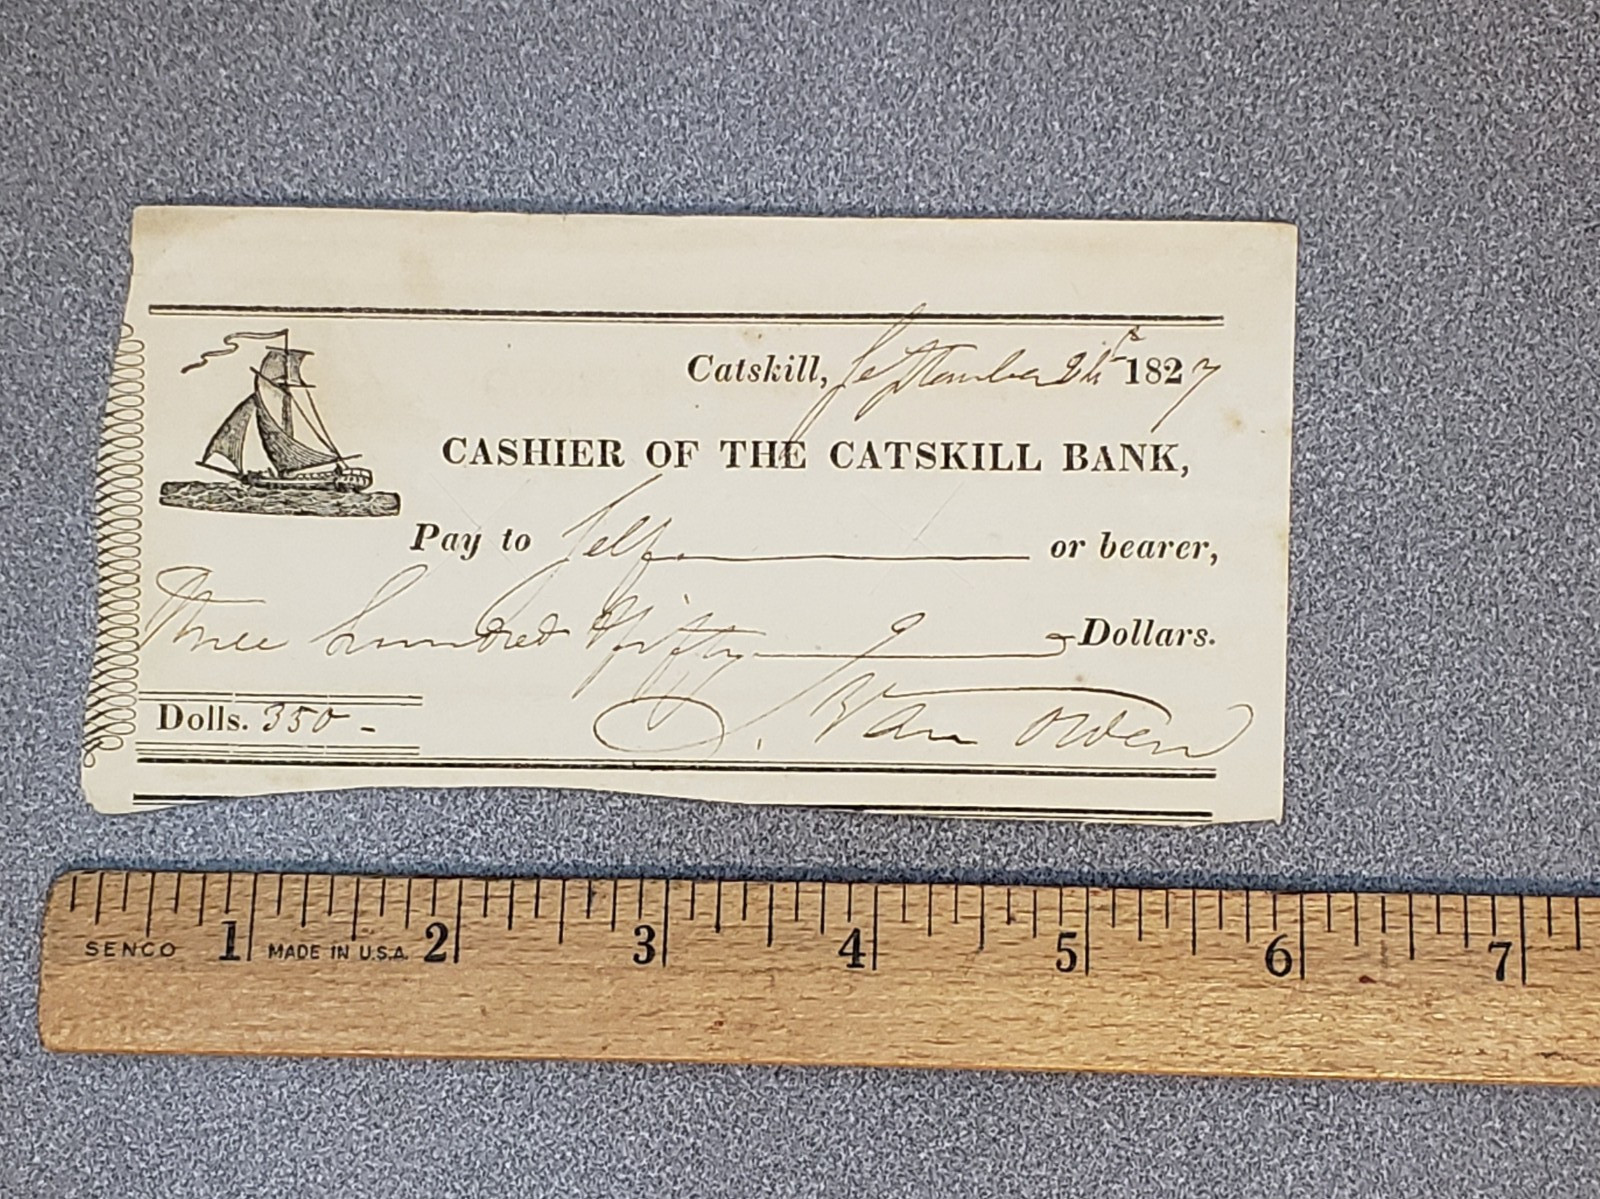 Catskill, September 24th 1827
CASHIER OF THE CATSKILL BANK,
Pay to self or bearer,
Three hundred & fifty Dollars.
Dolls. 350-
J. Van Orden
SENCO 1 MADE IN U.S.A. 2 3 4 5 6 7